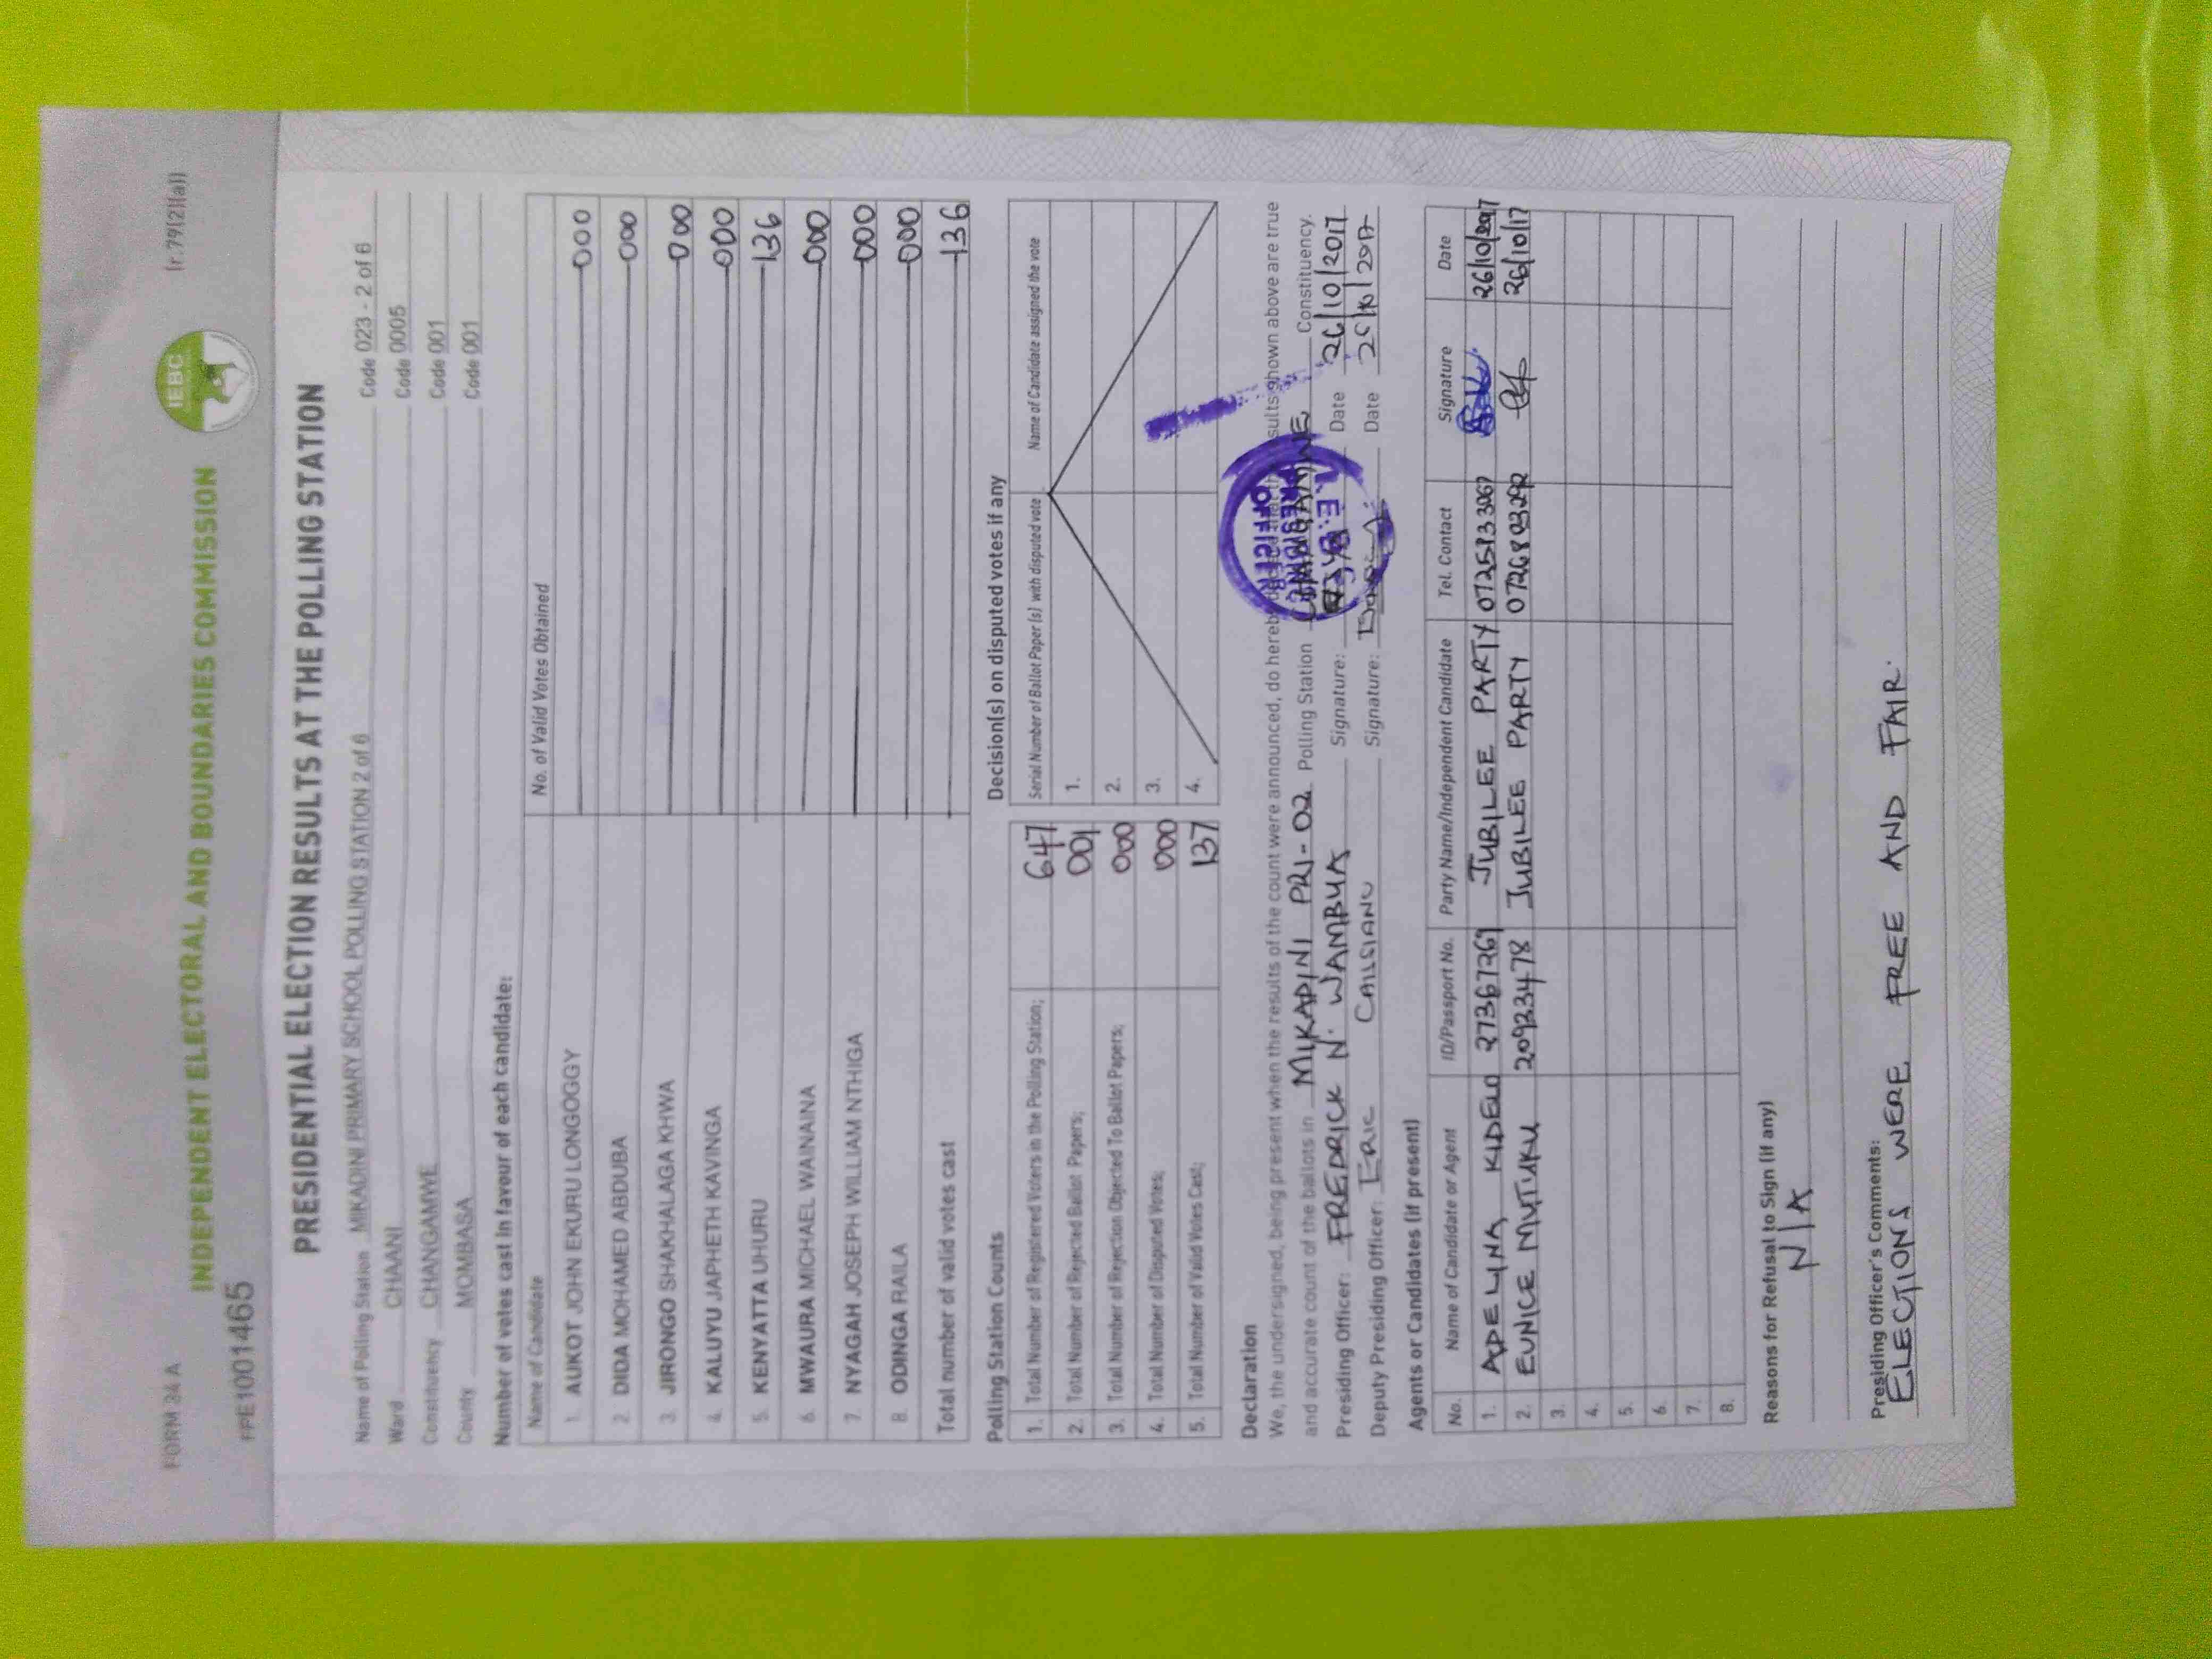 FORM 34 A
[r.79(2)(a)]
IEBC
INDEPENDENT ELECTORAL AND BOUNDARIES COMMISSION
PRESIDENTIAL ELECTION RESULTS AT THE POLLING STATION
Name of Polling Station MIKADINI PRIMARY SCHOOL POLLING STATION 2 of 6 Code 023 - 2 of 6
Ward CHAANI Code 0005
Constituency CHANGAMWE Code 001
County MOMBASA Code 001
Number of votes cast in favour of each candidate:
Name of Candidate No. of Valid Votes Obtained
1. AUKOT JOHN EKURU LONGOGGY 000
2. DIDA MOHAMED ABDUBA 000
3. JIRONGO SHAKHALAGA KHWA 000
4. KALUYU JAPHETH KAVINGA 000
5. KENYATTA UHURU 136
6. MWAURA MICHAEL WAINAINA 000
7. NYAGAH JOSEPH WILLIAM NTHIGA 000
8. ODINGA RAILA 000
Total number of valid votes cast 136
Polling Station Counts
1. Total Number of Registered Voters in the Polling Station; 647
2. Total Number of Rejected Ballot Papers; 001
3. Total Number of Rejection Objected To Ballot Papers; 000
4. Total Number of Disputed Votes; 000
5. Total Number of Valid Votes Cast; 137
Decision(s) on disputed votes if any
Serial Number of Ballot Paper (s) with disputed vote Name of Candidate assigned the vote
1.
2.
3.
4.
Declaration
We, the undersigned, being present when the results of the count were announced, do hereby shown above are true
and accurate count of the ballots in MIKADINI PRI-02 Polling Station CHANGAMWE Constituency.
Presiding Officer: FREDRICK N. WAMBUA Signature: Date 26/10/2017
Deputy Presiding Officer: ERIC Signature: Date
PRESIDING
OFFICER
Agents or Candidates (if present)
No. Name of Candidate or Agent ID/Passport No. Party Name/Independent Candidate Tel. Contact Signature Date
1. ADELINA KIDELO 27367269 JUBILEE PARTY 26/10/2017
2. EUNICE MUTUKU 20923478 JUBILEE PARTY 26/10/17
3.
4.
5.
6.
7.
8.
Reasons for Refusal to Sign (if any)
N/A
Presiding Officer's Comments:
ELECTIONS WERE FREE AND FAIR.